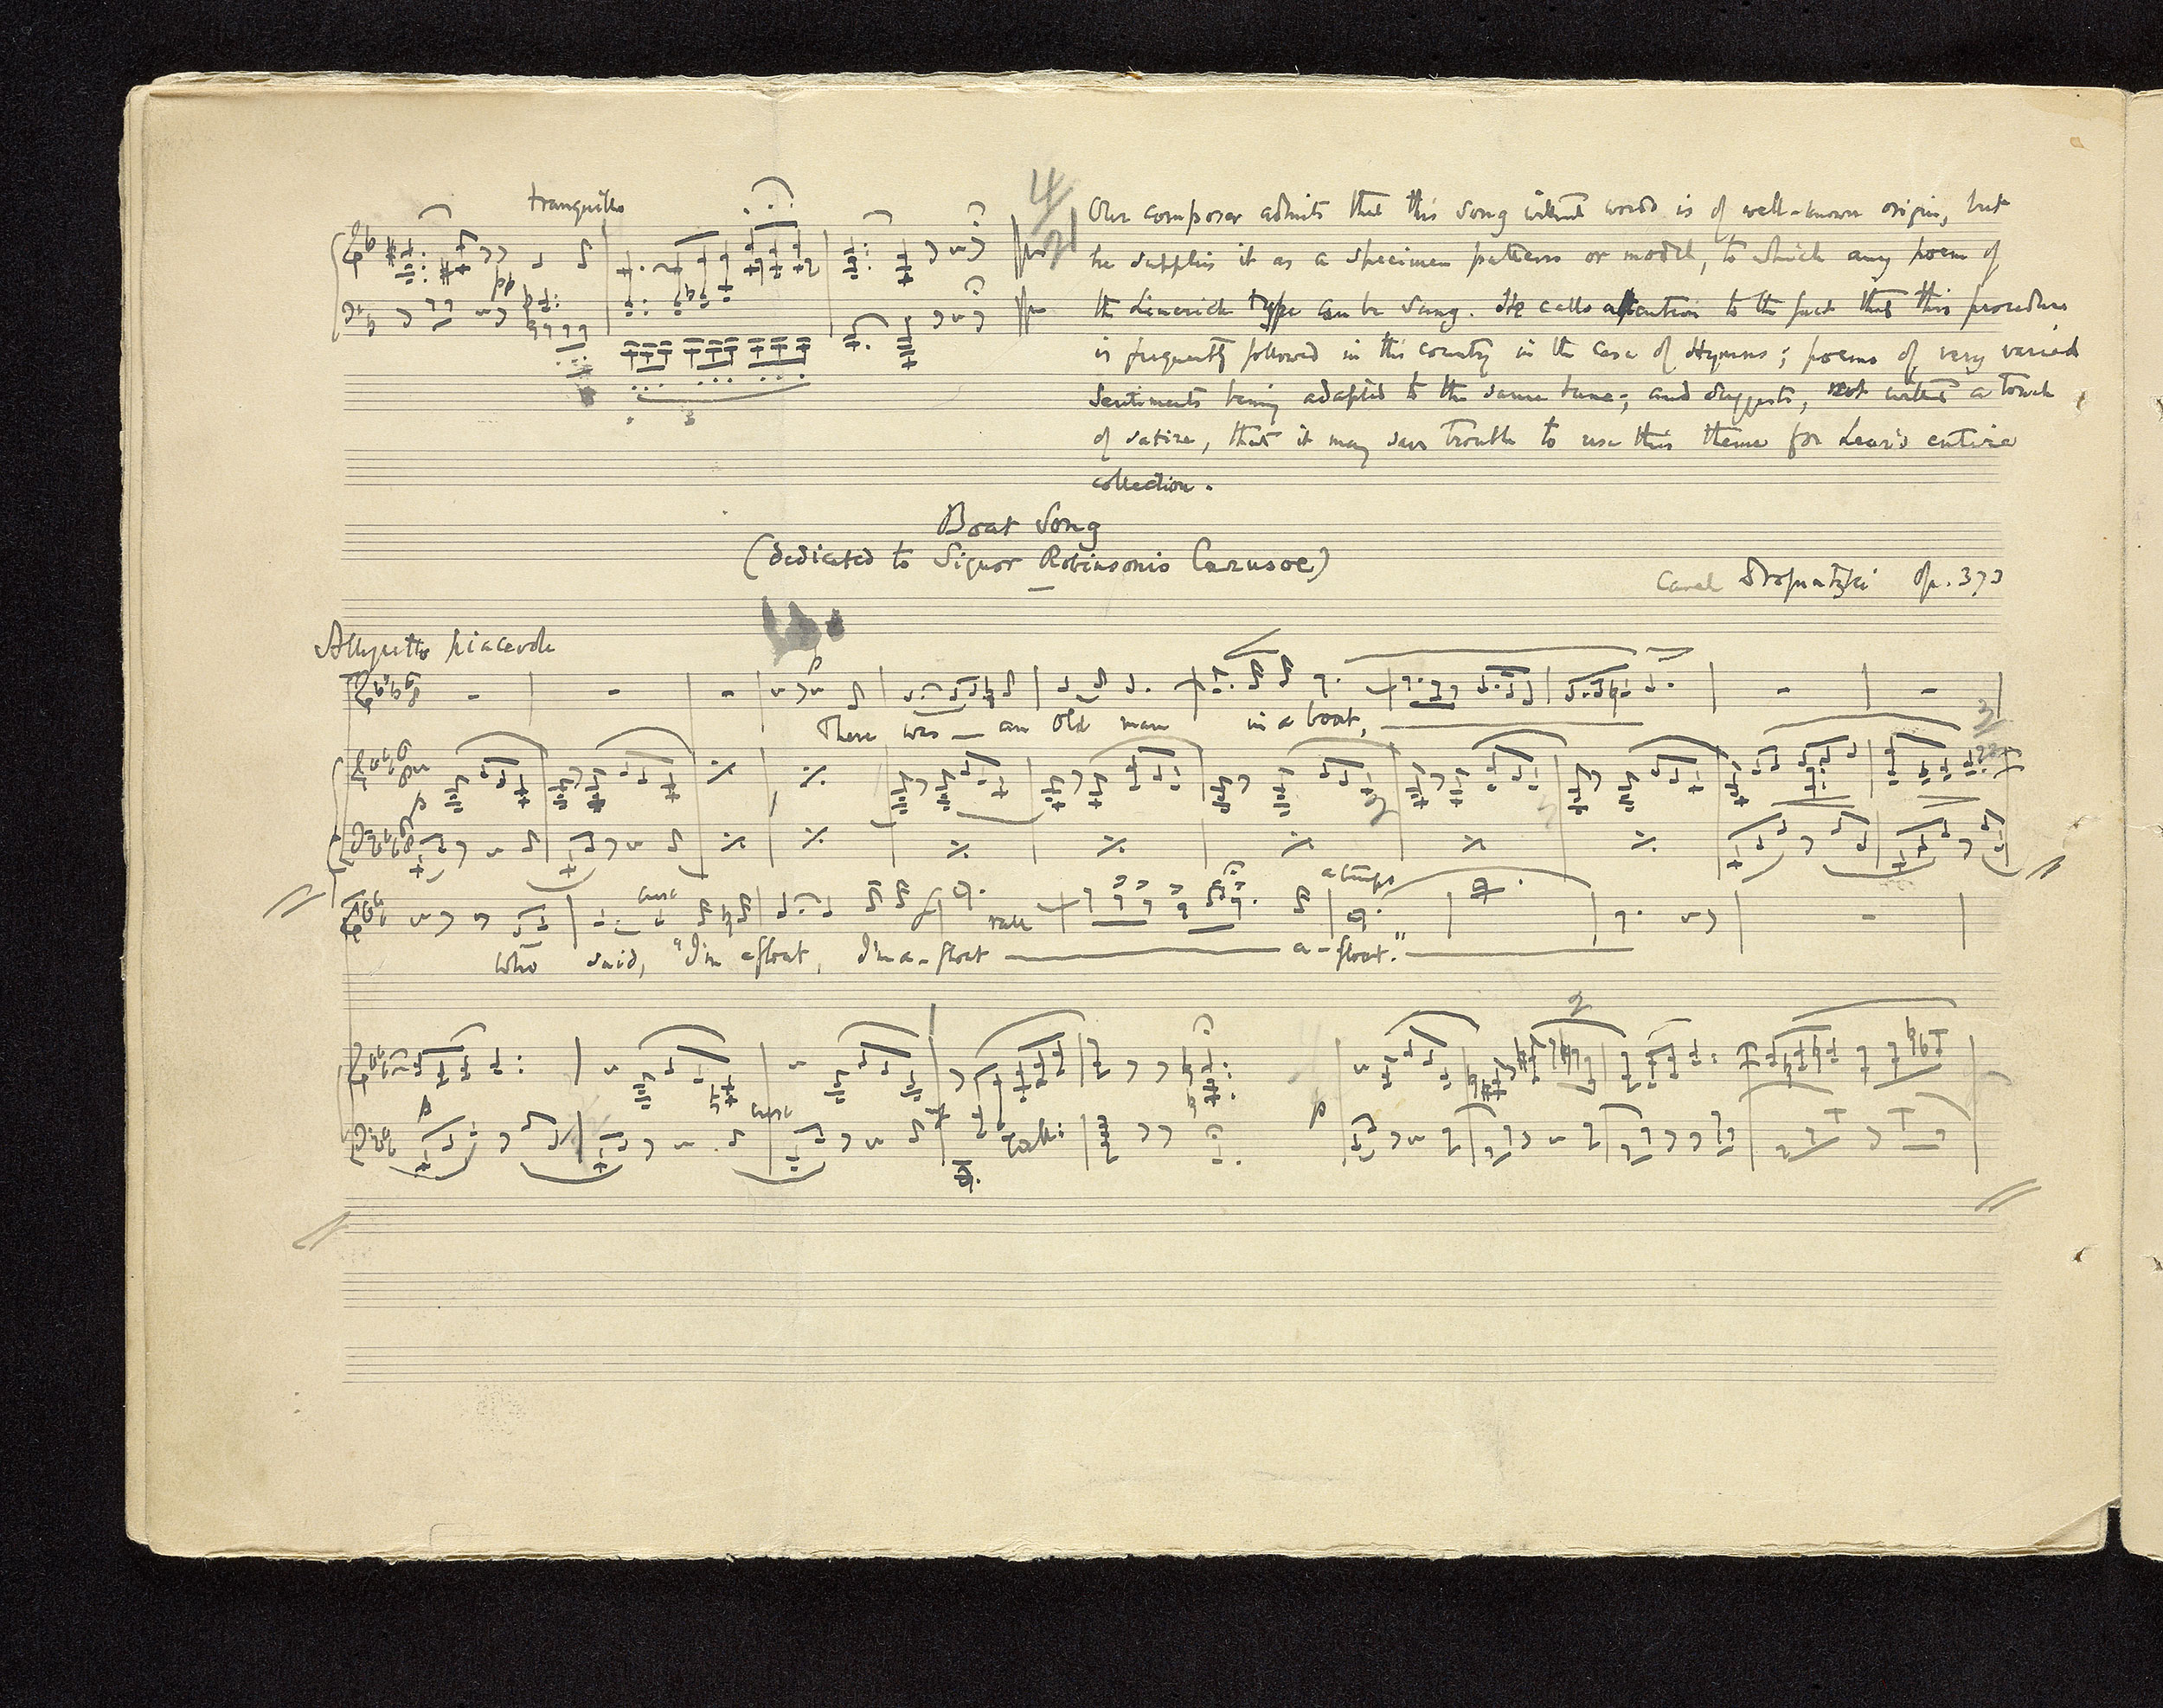 tranquillo
4/21
pp
Our composer admits that this song without words is of well-known origin, but
he supplies it as a specimen pattern or model, to which any poem of
the Limerick type can be sung. He calls attention to the fact that this procedure
is frequently followed in this country in the case of Hymns; poems of very varied
sentiments being adapted to the same tune; and suggests, not without a touch
of satire, that it may save trouble to use this theme for Lear's entire
collection.
3
Boat Song
(dedicated to Signor Robinsonio Carusoe)
Op. 373
Allegretto piacevole
p
There was — an old man in a boat,
p
cresc
rall
a tempo
Who said, "I'm afloat, I'm a-float — a-float."
2
p
cresc
rall:
p